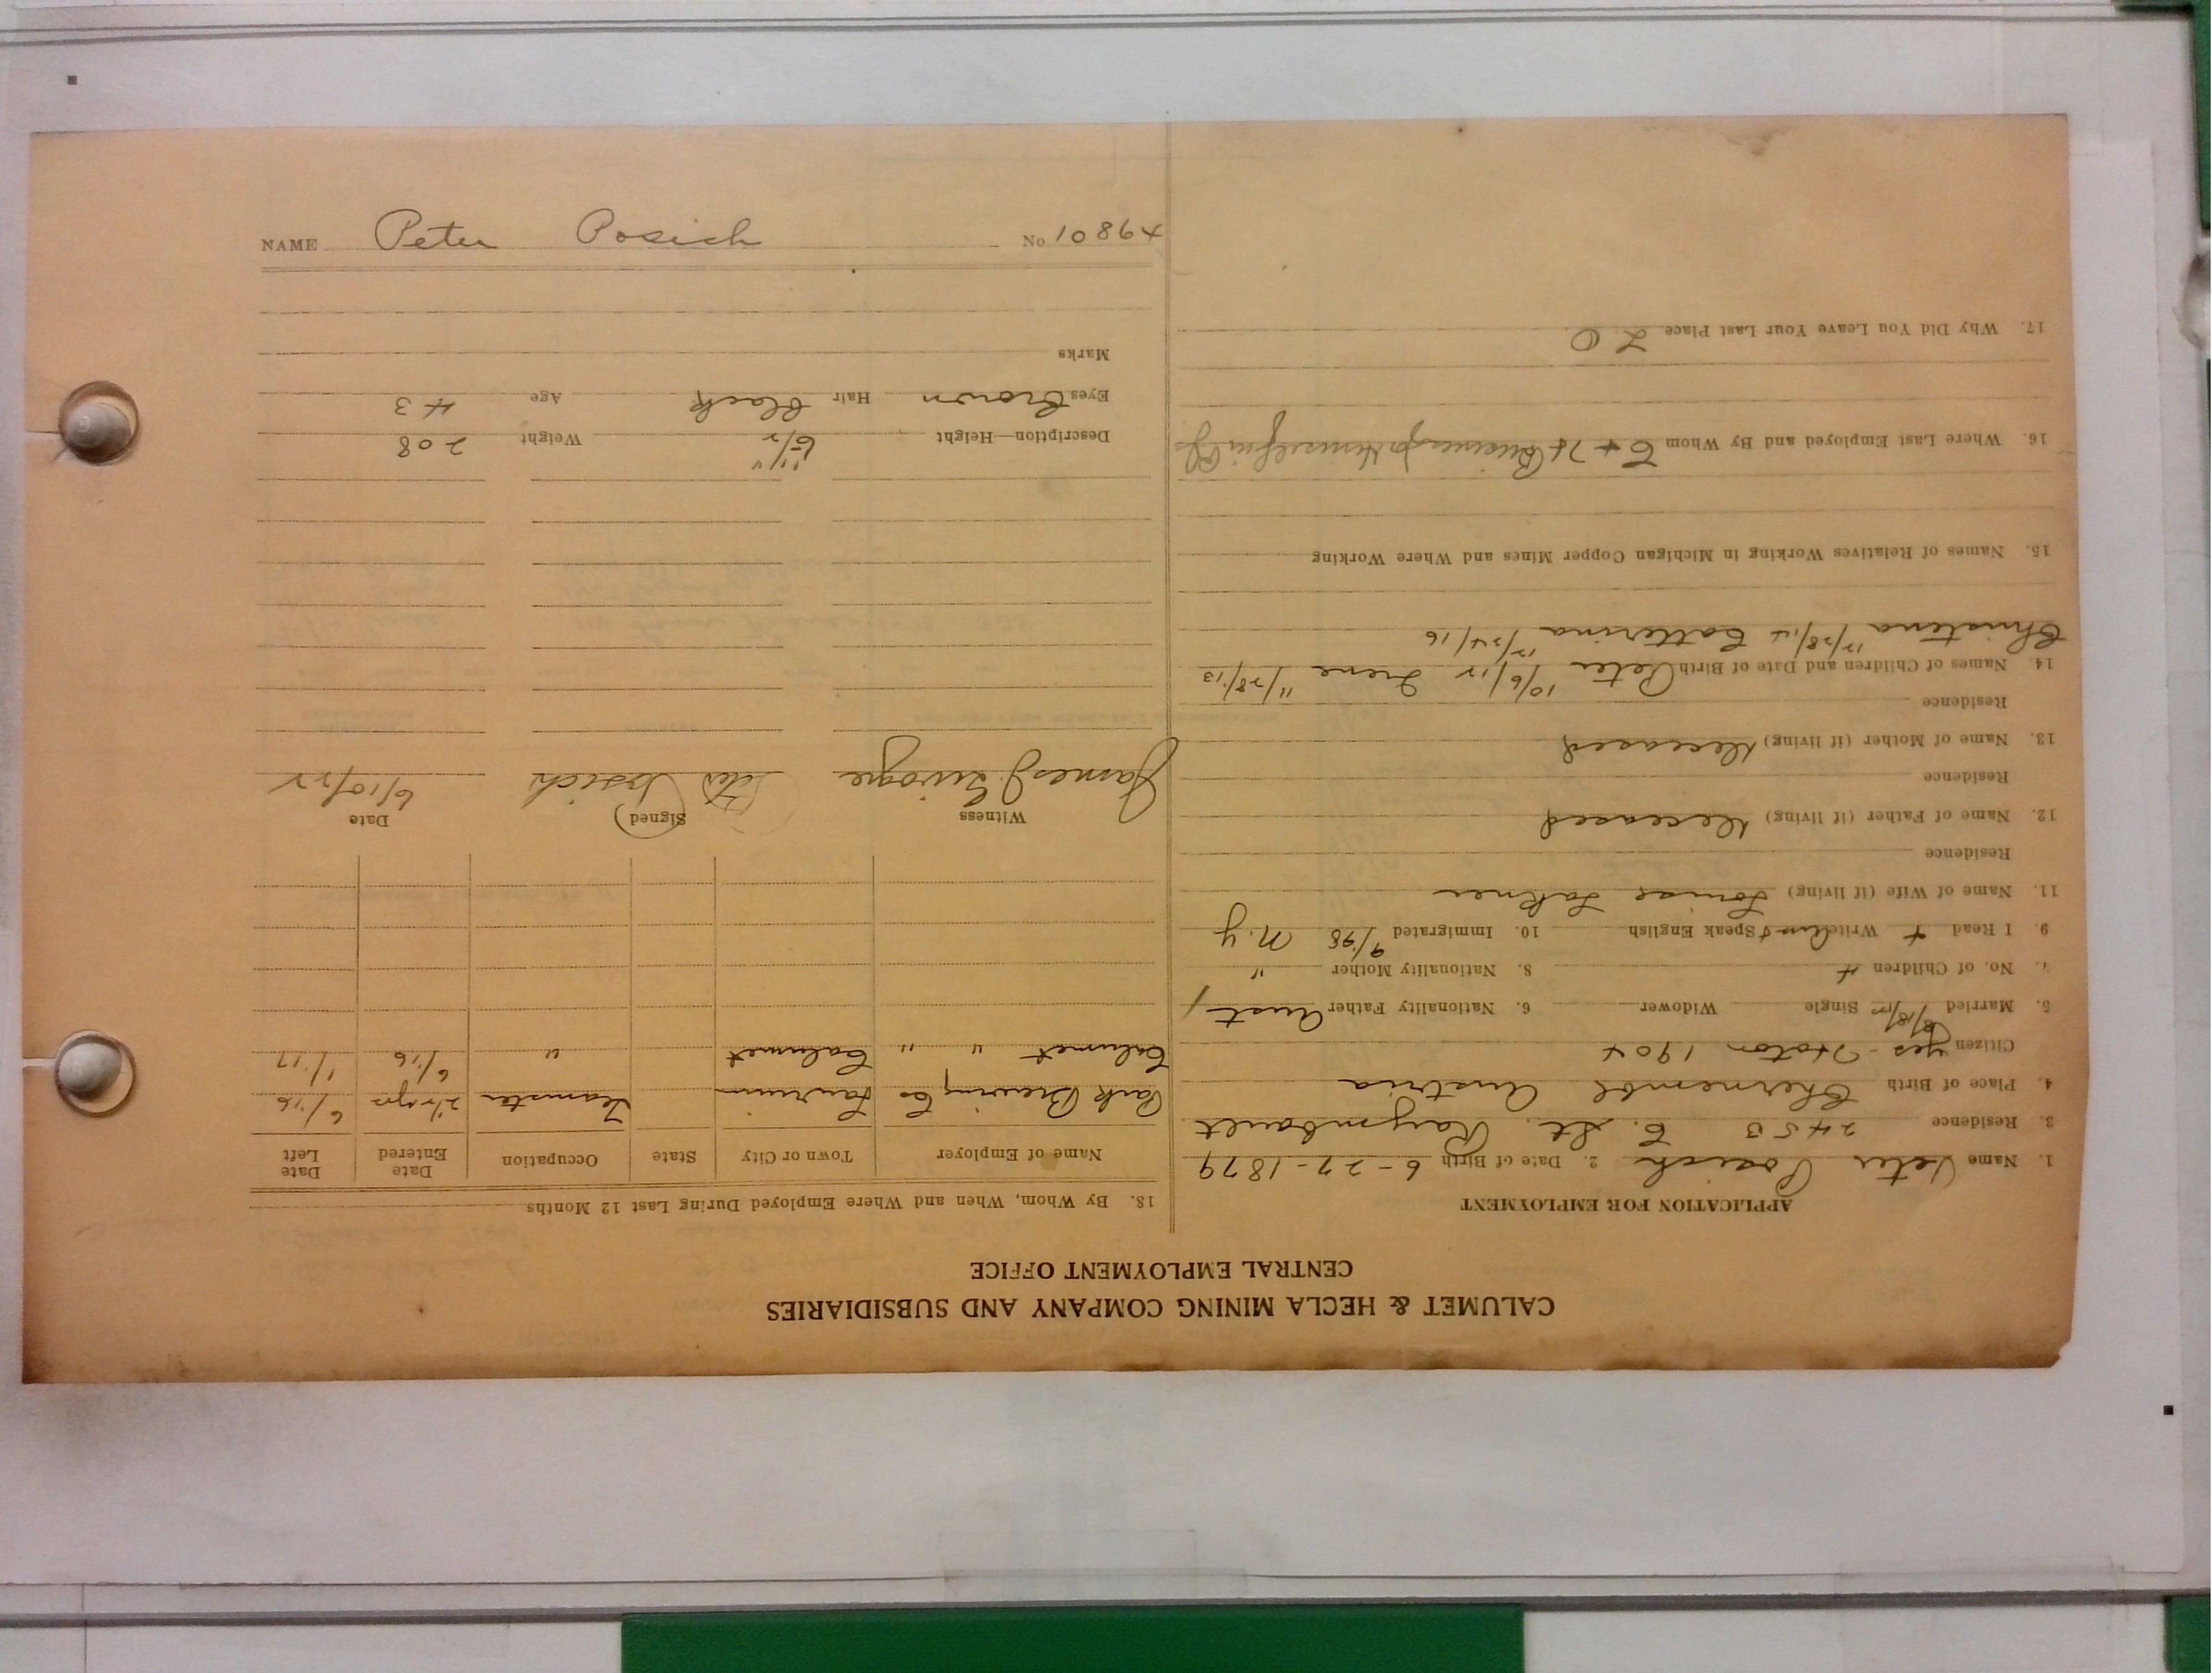 CALUMET & HECLA MINING COMPANY AND SUBSIDIARIES
CENTRAL EMPLOYMENT OFFICE
APPLICATION FOR EMPLOYMENT
1. Name Peter Posich 2. Date of Birth 6-27-1879
3. Residence 2453 E. St. Raymbault
4. Place of Birth Chernembl Austria
Citizen yes - Hoton 1904
5. Married Single Widower 6. Nationality Father Aust
7. No. of Children 4 8. Nationality Mother "
9. I Read + Write Speak English 10. Immigrated 9/98 N.Y
11. Name of Wife (if living) Louise
Residence
12. Name of Father (if living) Deceased
Residence
13. Name of Mother (if living) Deceased
Residence
14. Names of Children and Date of Birth Peter 10/6/12 Irene 11/28/13
Christina 12/28/14 Catterina 12/24/16
15. Names of Relatives Working in Michigan Copper Mines and Where Working
16. Where Last Employed and By Whom Business for Himself in
17. Why Did You Leave Your Last Place L O
18. By Whom, When and Where Employed During Last 12 Months
Name of Employer Town or City State Occupation Date Entered Date Left
Park Brewing Co Laurium Teamster 2 1/2 yrs 6/16
Calumet " " Calumet " 6/16 1/17
Witness (Signed) Date
James J. Peter Posich 6/10/22
Description—Height 5/11" Weight 208
Eyes Brown Hair Black Age 43
Marks
NAME Peter Posich No. 10864